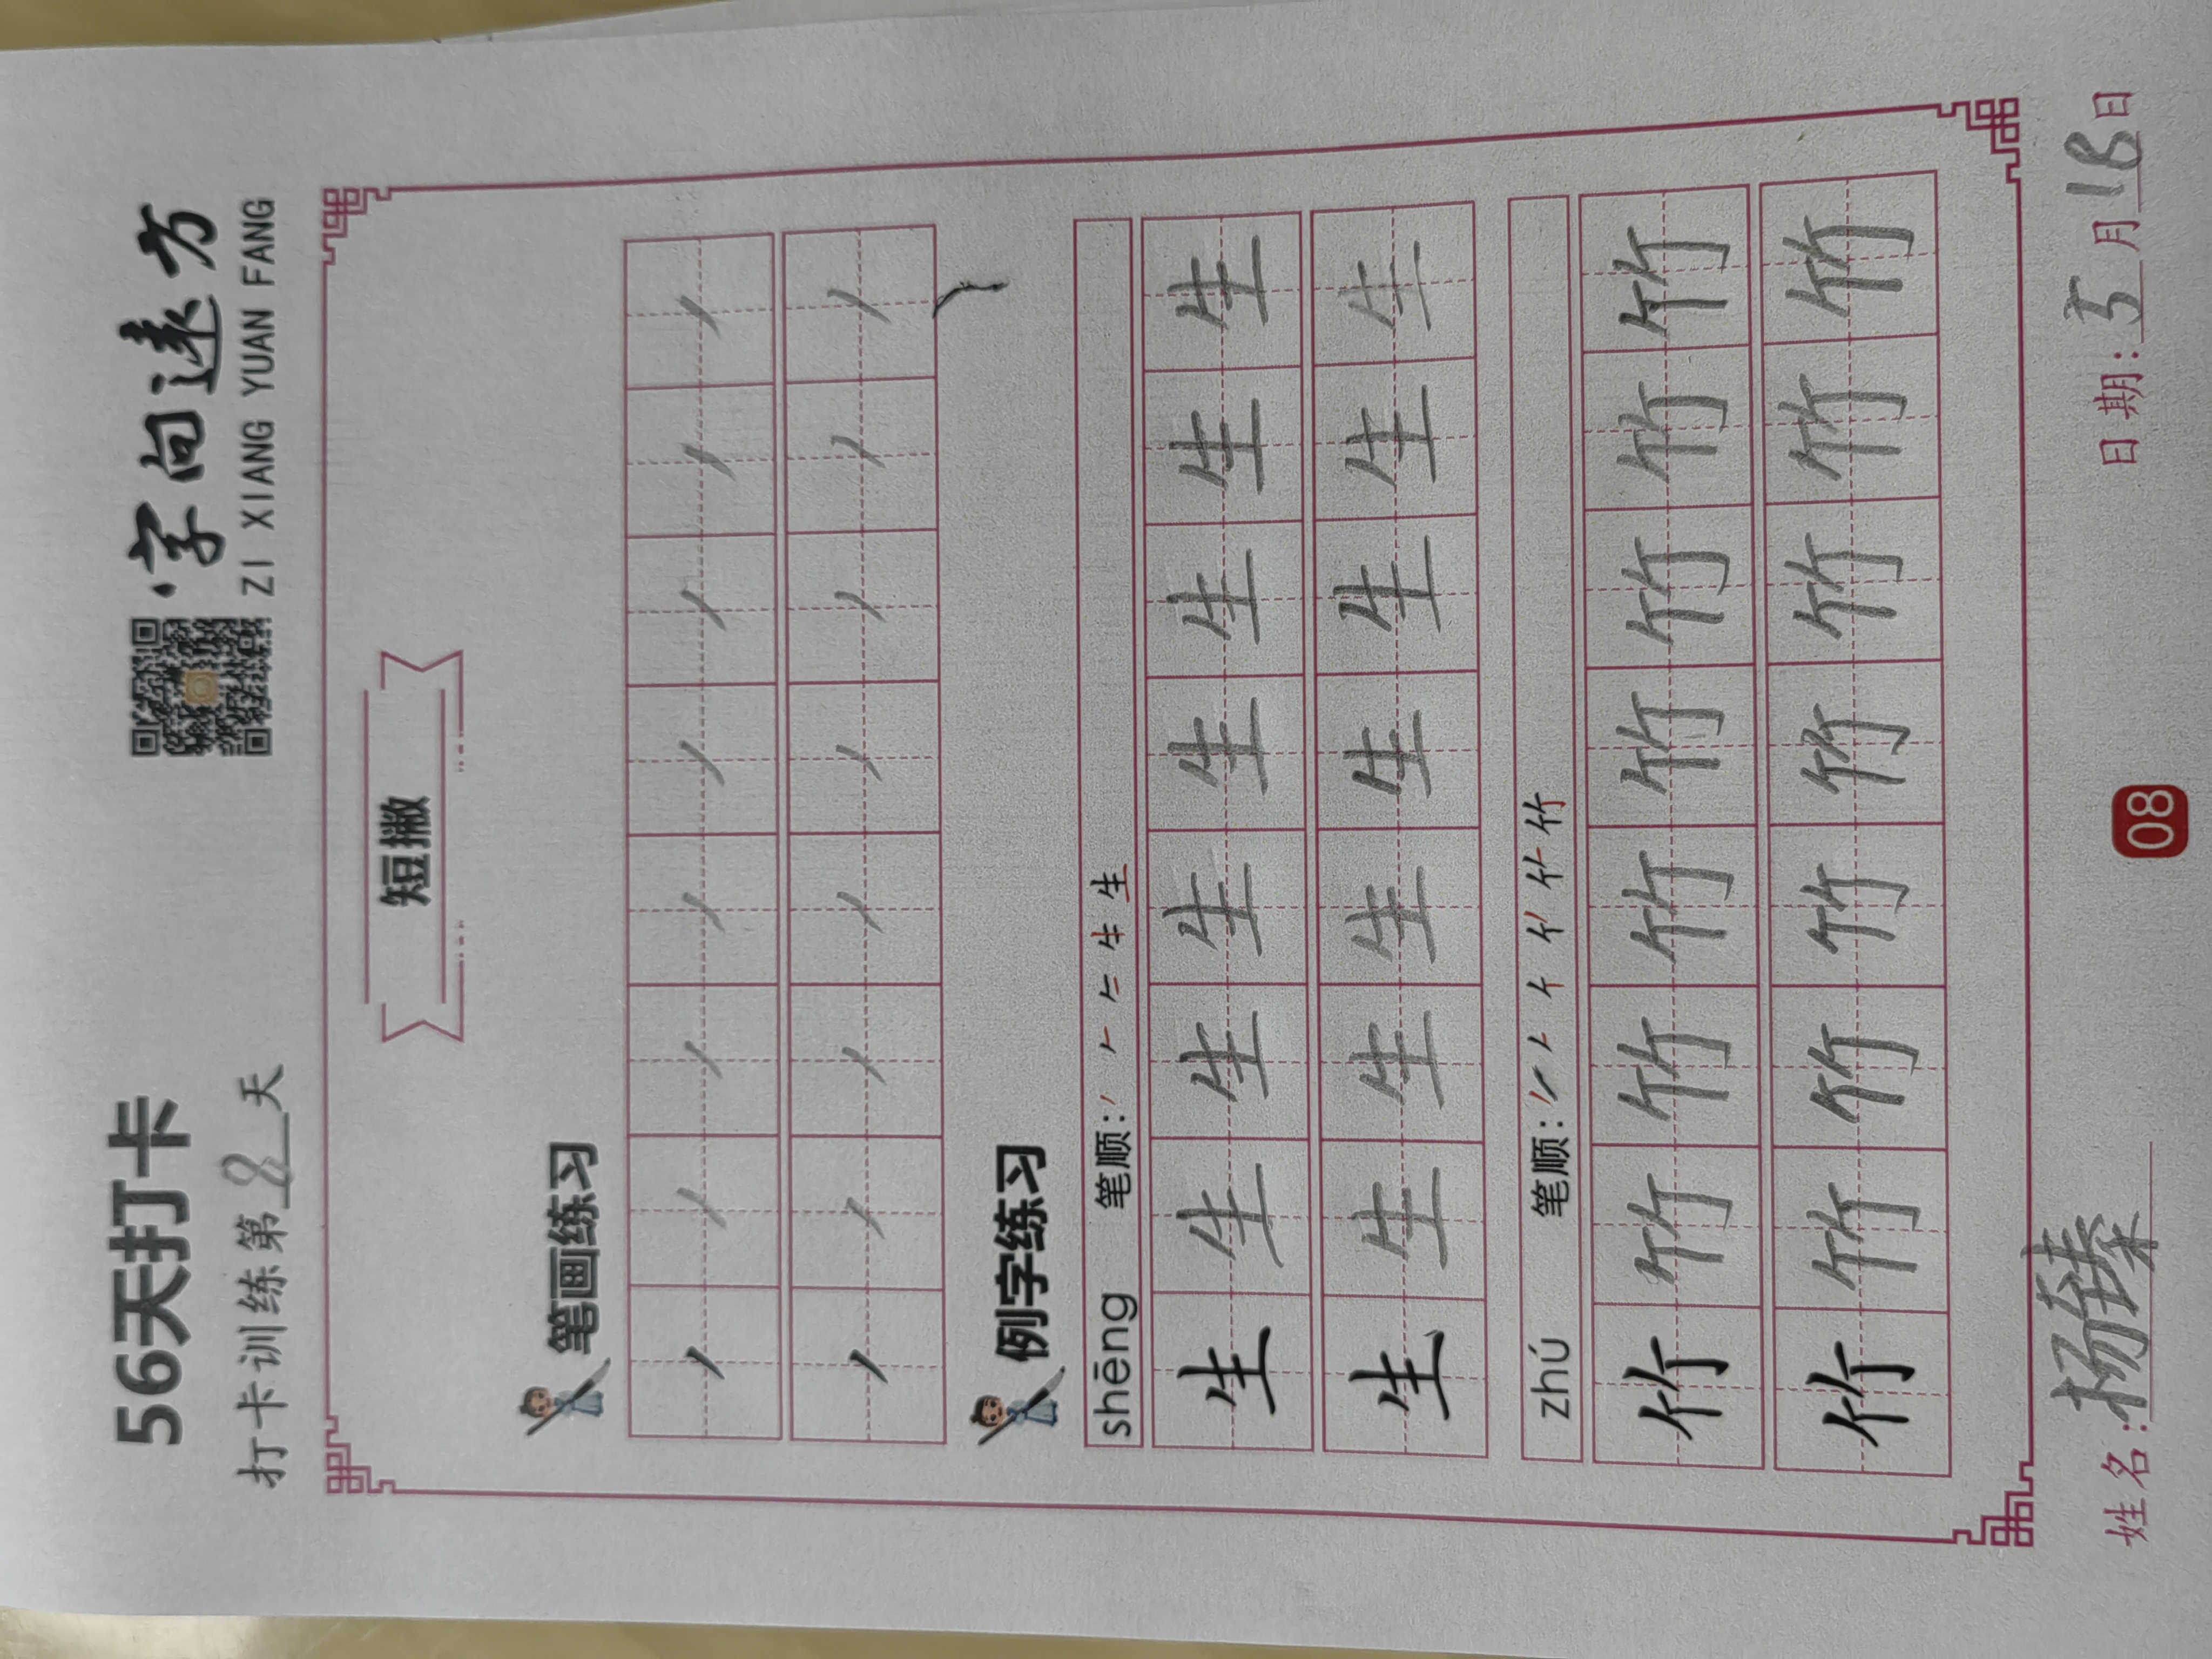 56天打卡
打卡训练第8天
·字向远方
ZI XIANG YUAN FANG
短撇
笔画练习
丿 丿 丿 丿 丿 丿 丿 丿
丿 丿 丿 丿 丿 丿 丿 丿
例字练习
shēng 笔顺:
生 生 生 生 生 生 生 生
生 生 生 生 生 生 生 生
zhú 笔顺:
竹 竹 竹 竹 竹 竹 竹 竹
竹 竹 竹 竹 竹 竹 竹 竹
姓名:杨臻 日期:5月18日
08